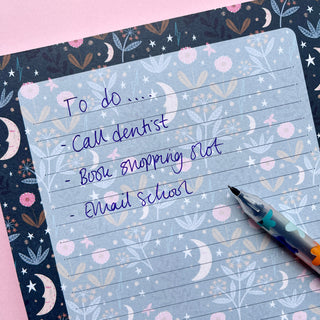 To do ....
- Call dentist
- Book shopping slot
- Email School